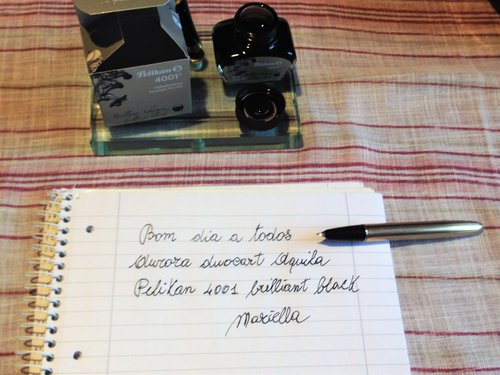 Pelikan
4001
Bom dia a todos
Aurora duocart Aquila
Pelikan 4001 brilliant black
Mariella